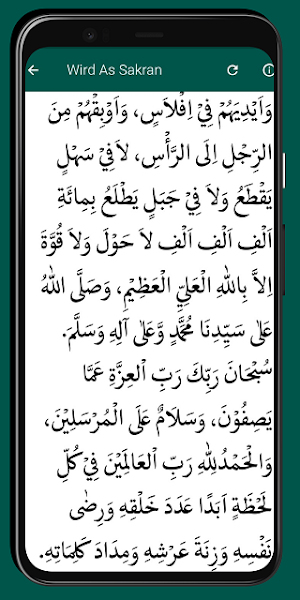 Wird As Sakran
وَاَيْدِيَهُمْ فِيْ اِفْلَاسٍ، وَاَوْبِقْهُمْ مِنَ
الرِّجْلِ اِلَى الرَّأْسِ، لاَفِيْ سَهْلٍ
يَقْطَعُ وَلاَ فِيْ جَبَلٍ يَطْلَعُ بِمِائَةِ
اَلْفِ اَلْفِ اَلْفِ لاَ حَوْلَ وَلاَ قُوَّةَ
اِلاَّ بِاللهِ الْعَلِيِّ الْعَظِيْمِ، وَصَلَّى اللهُ
عَلىٰ سَيِّدِنَا مُحَمَّدٍ وَّعَلىٰ آلِهِ وَسَلَّمَ.
سُبْحَانَ رَبِّكَ رَبِّ الْعِزَّةِ عَمَّا
يَصِفُوْنَ، وَسَلَامٌ عَلَى الْمُرْسَلِيْنَ،
وَالْحَمْدُلِلّٰهِ رَبِّ الْعَالَمِيْنَ فِيْ كُلِّ
لَحْظَةٍ اَبَدًا عَدَدَ خَلْقِهِ وَرِضٰى
نَفْسِهِ وَزِنَةَ عَرْشِهِ وَمِدَادَ كَلِمَاتِهِ.